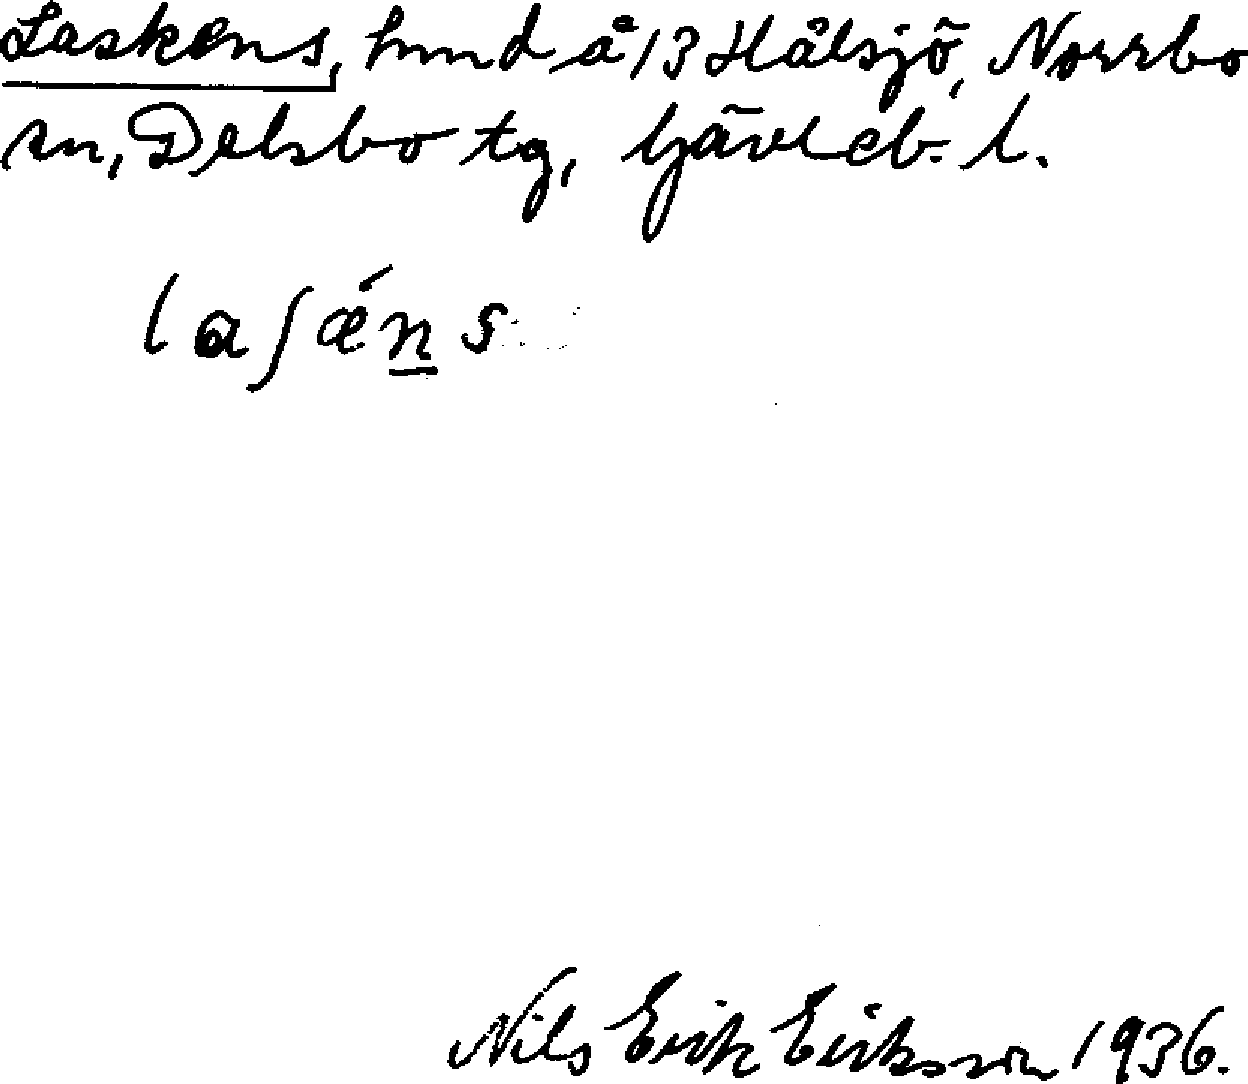 Laskens, hmd å 13 Hålsjö, Norrbo
sn, Delsbo tg, Gävleb. l.
laʃǽn̲s
Nils Erik Eriksson 1936.